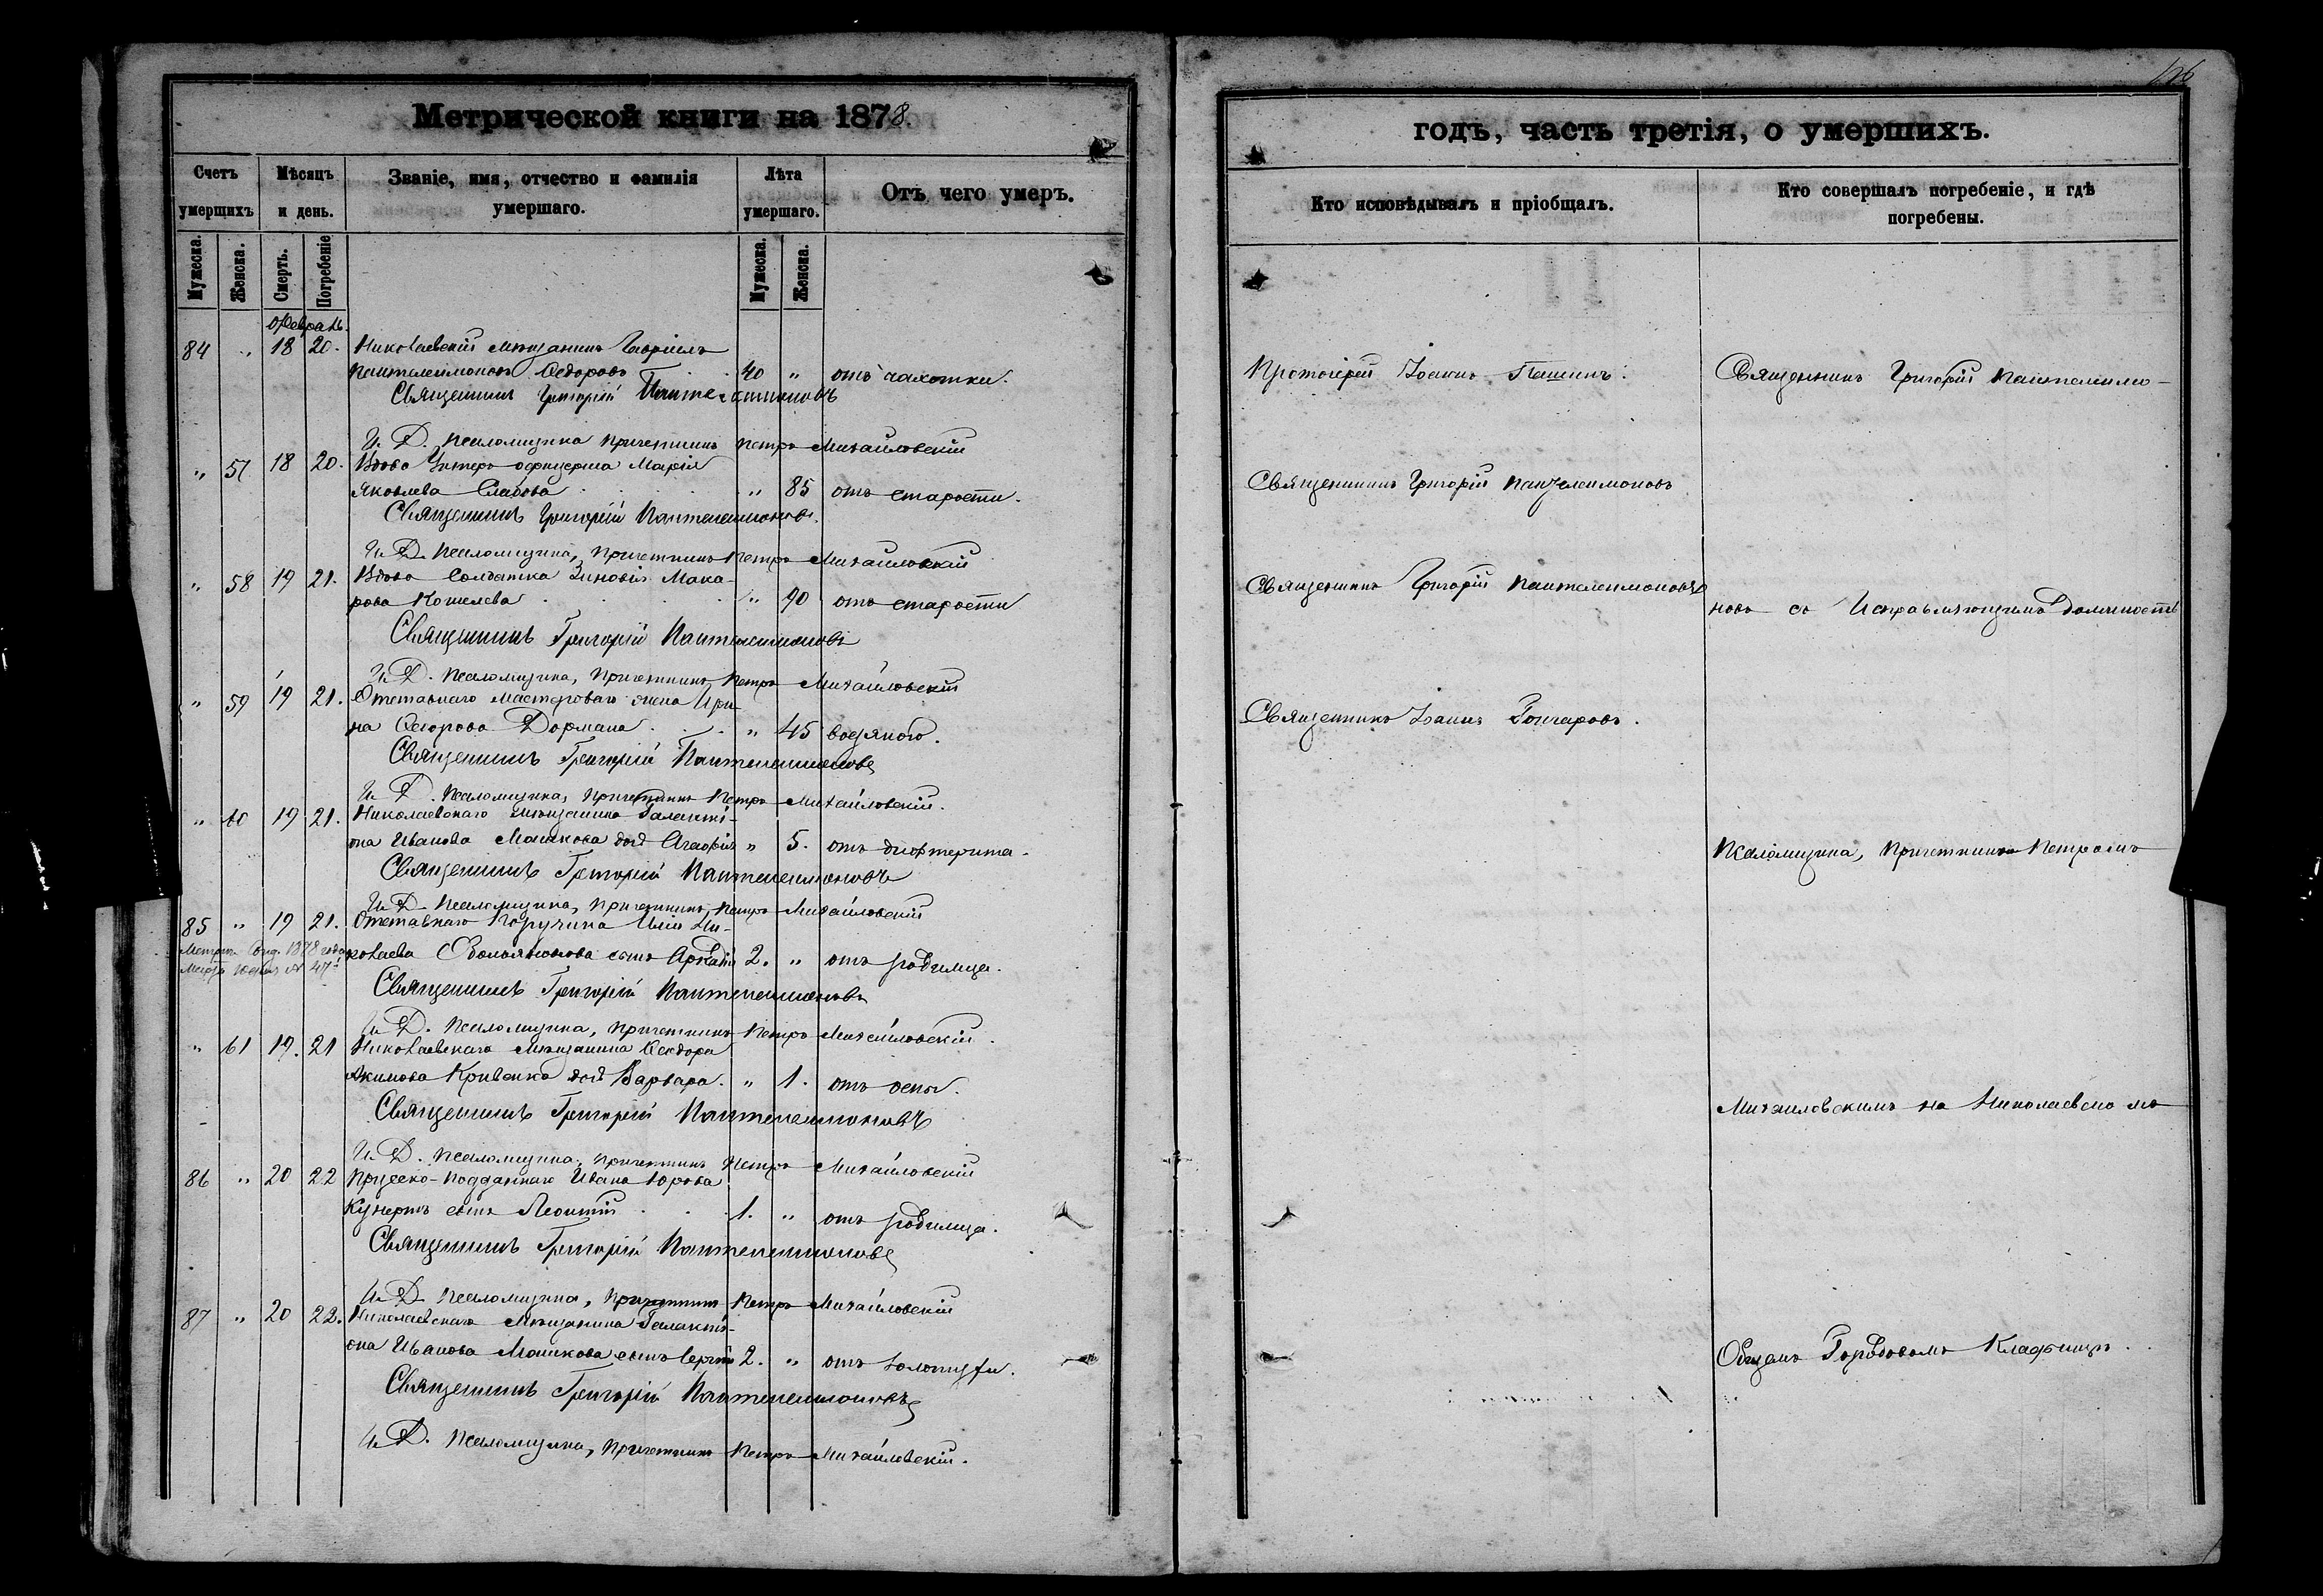 Метрической книги на 1878.
Счетъ умершихъ
Мѣсяцъ и день.
Званіе, имя, отчество и фамилія умершаго.
Лѣта умершаго.
Отъ чего умеръ.
Мужеска.
Женска.
Смерть.
Погребеніе
Мужеска.
Женска.
Февраль.
84 " 18 20. Николаевскій мѣщанинъ Гавріилъ
Пантелеимоновъ Ѳедоровъ 40 " отъ чахотки.
Священникъ Григорій Пантелеимоновъ
И. Д. Псаломщика Причетникъ Петръ Михайловскій
" 57 18 20. Вдова Унтеръ-офицерша Марія
Яковлева Слабова " 85 отъ старости.
Священникъ Григорій Пантелеимоновъ.
И. Д. Псаломщика, Причетникъ Петръ Михайловскій
" 58 19 21. Вдова Солдатка Зиновія Мака-
рова Кошелева " 90 отъ старости
Священникъ Григорій Пантелеимоновъ
И. Д. Псаломщика, Причетникъ Петръ Михайловскій
" 59 19 21. Отставнаго мастероваго жена Ири-
на Ѳедорова Дормана " 45 водяного.
Священникъ Григорій Пантелеимоновъ
И. Д. Псаломщика, Причетникъ Петръ Михайловскій.
" 60 19 21. Николаевскаго мѣщанина Галакті-
она Иванова Машкова дочь Агафія " 5. отъ дифтерита.
Священникъ Григорій Пантелеимоновъ
И. Д. Псаломщика, Причетникъ Петръ Михайловскій
85 " 19 21. Отставнаго Поручика Иліи Ни-
колаева сынъ Аркадій 2. " отъ родимца.
1878 года
Священникъ Григорій Пантелеимоновъ
И. Д. Псаломщика, Причетникъ Петръ Михайловскій.
" 61 19. 21 Николаевскаго мѣщанина Ѳеодора
Акимова Кривенко дочь Варвара. " 1. отъ оспы.
Священникъ Григорій Пантелеимоновъ
И. Д. Псаломщика, Причетникъ Петръ Михайловскій
86 " 20 22 Прусско-подданнаго Ивана Юрова
Кунертъ сынъ Леонтій 1. " отъ родимца.
Священникъ Григорій Пантелеимоновъ
И. Д. Псаломщика, Причетникъ Петръ Михайловскій
87 " 20 22. Николаевскаго мѣщанина Галакті-
она Иванова Машкова сынъ Сергій 2. " отъ золотухи.
Священникъ Григорій Пантелеимоновъ
И. Д. Псаломщика, Причетникъ Петръ Михайловскій.
годъ, часть третія, о умершихъ.
Кто исповѣдывалъ и пріобщалъ.
Кто совершалъ погребеніе, и гдѣ погребены.
Протоіерей Іоаннъ Пашинъ.
Священникъ Григорій Пантелеимо-
Священникъ Григорій Пантелеимоновъ
Священникъ Григорій Пантелеимоновъ
новъ съ Исправляющимъ Должность
Священникъ Іоаннъ Гончаровъ.
Псаломщика, Причетникомъ Петромъ
Михайловскимъ на Николаевскомъ
Общемъ Городовомъ Кладбищѣ.